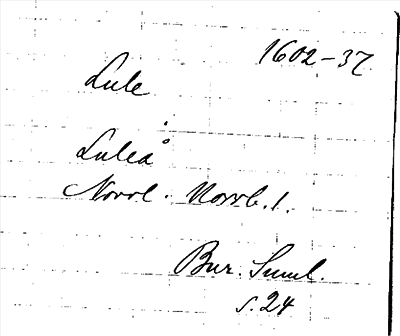 1602-37
Lule
Luleå
Norrl. Norrb. l.
Bur. Suml.
s. 24